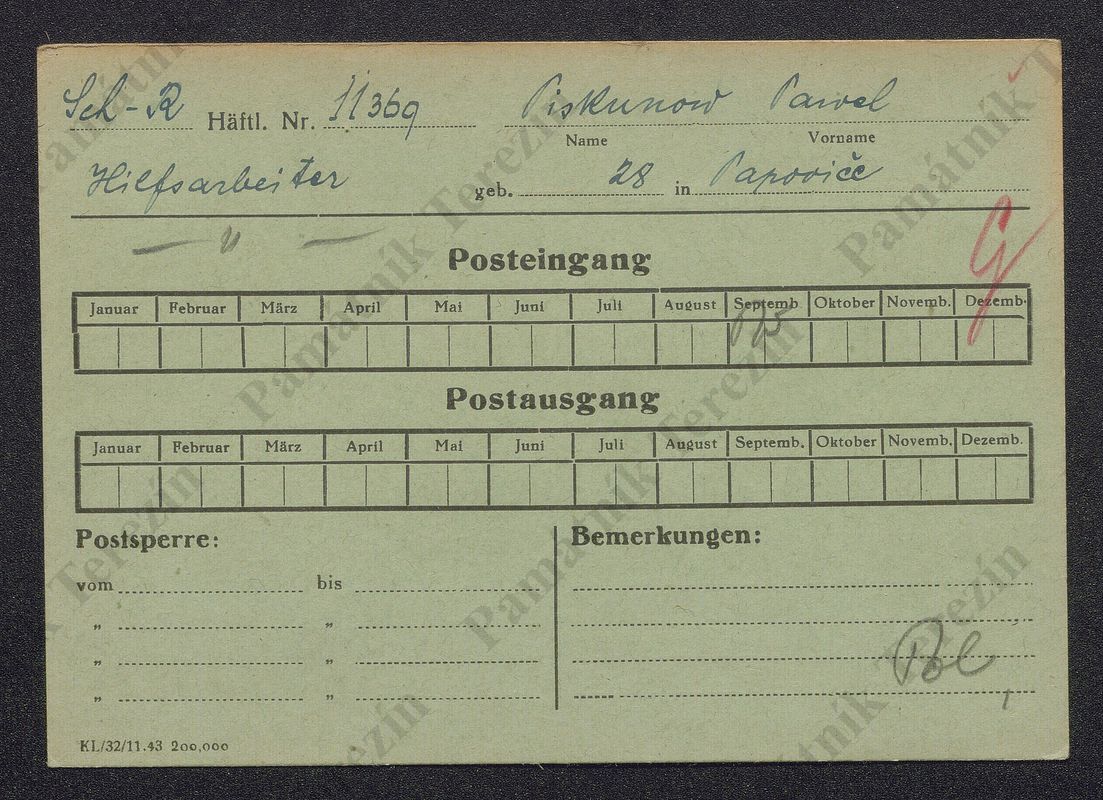 Sch-R Häftl. Nr. 11369 Piskunow Pawel
Name Vorname
Hilfsarbeiter geb. 28 in Papoviče
— " —
G
Posteingang
Januar Februar März April Mai Juni Juli August Septemb Oktober Novemb. Dezemb.
Postausgang
Januar Februar März April Mai Juni Juli August Septemb. Oktober Novemb. Dezemb.
Postsperre: Bemerkungen:
vom bis
" "
" "
" "
Pol
KL/32/11.43 200,000
Památník Terezín